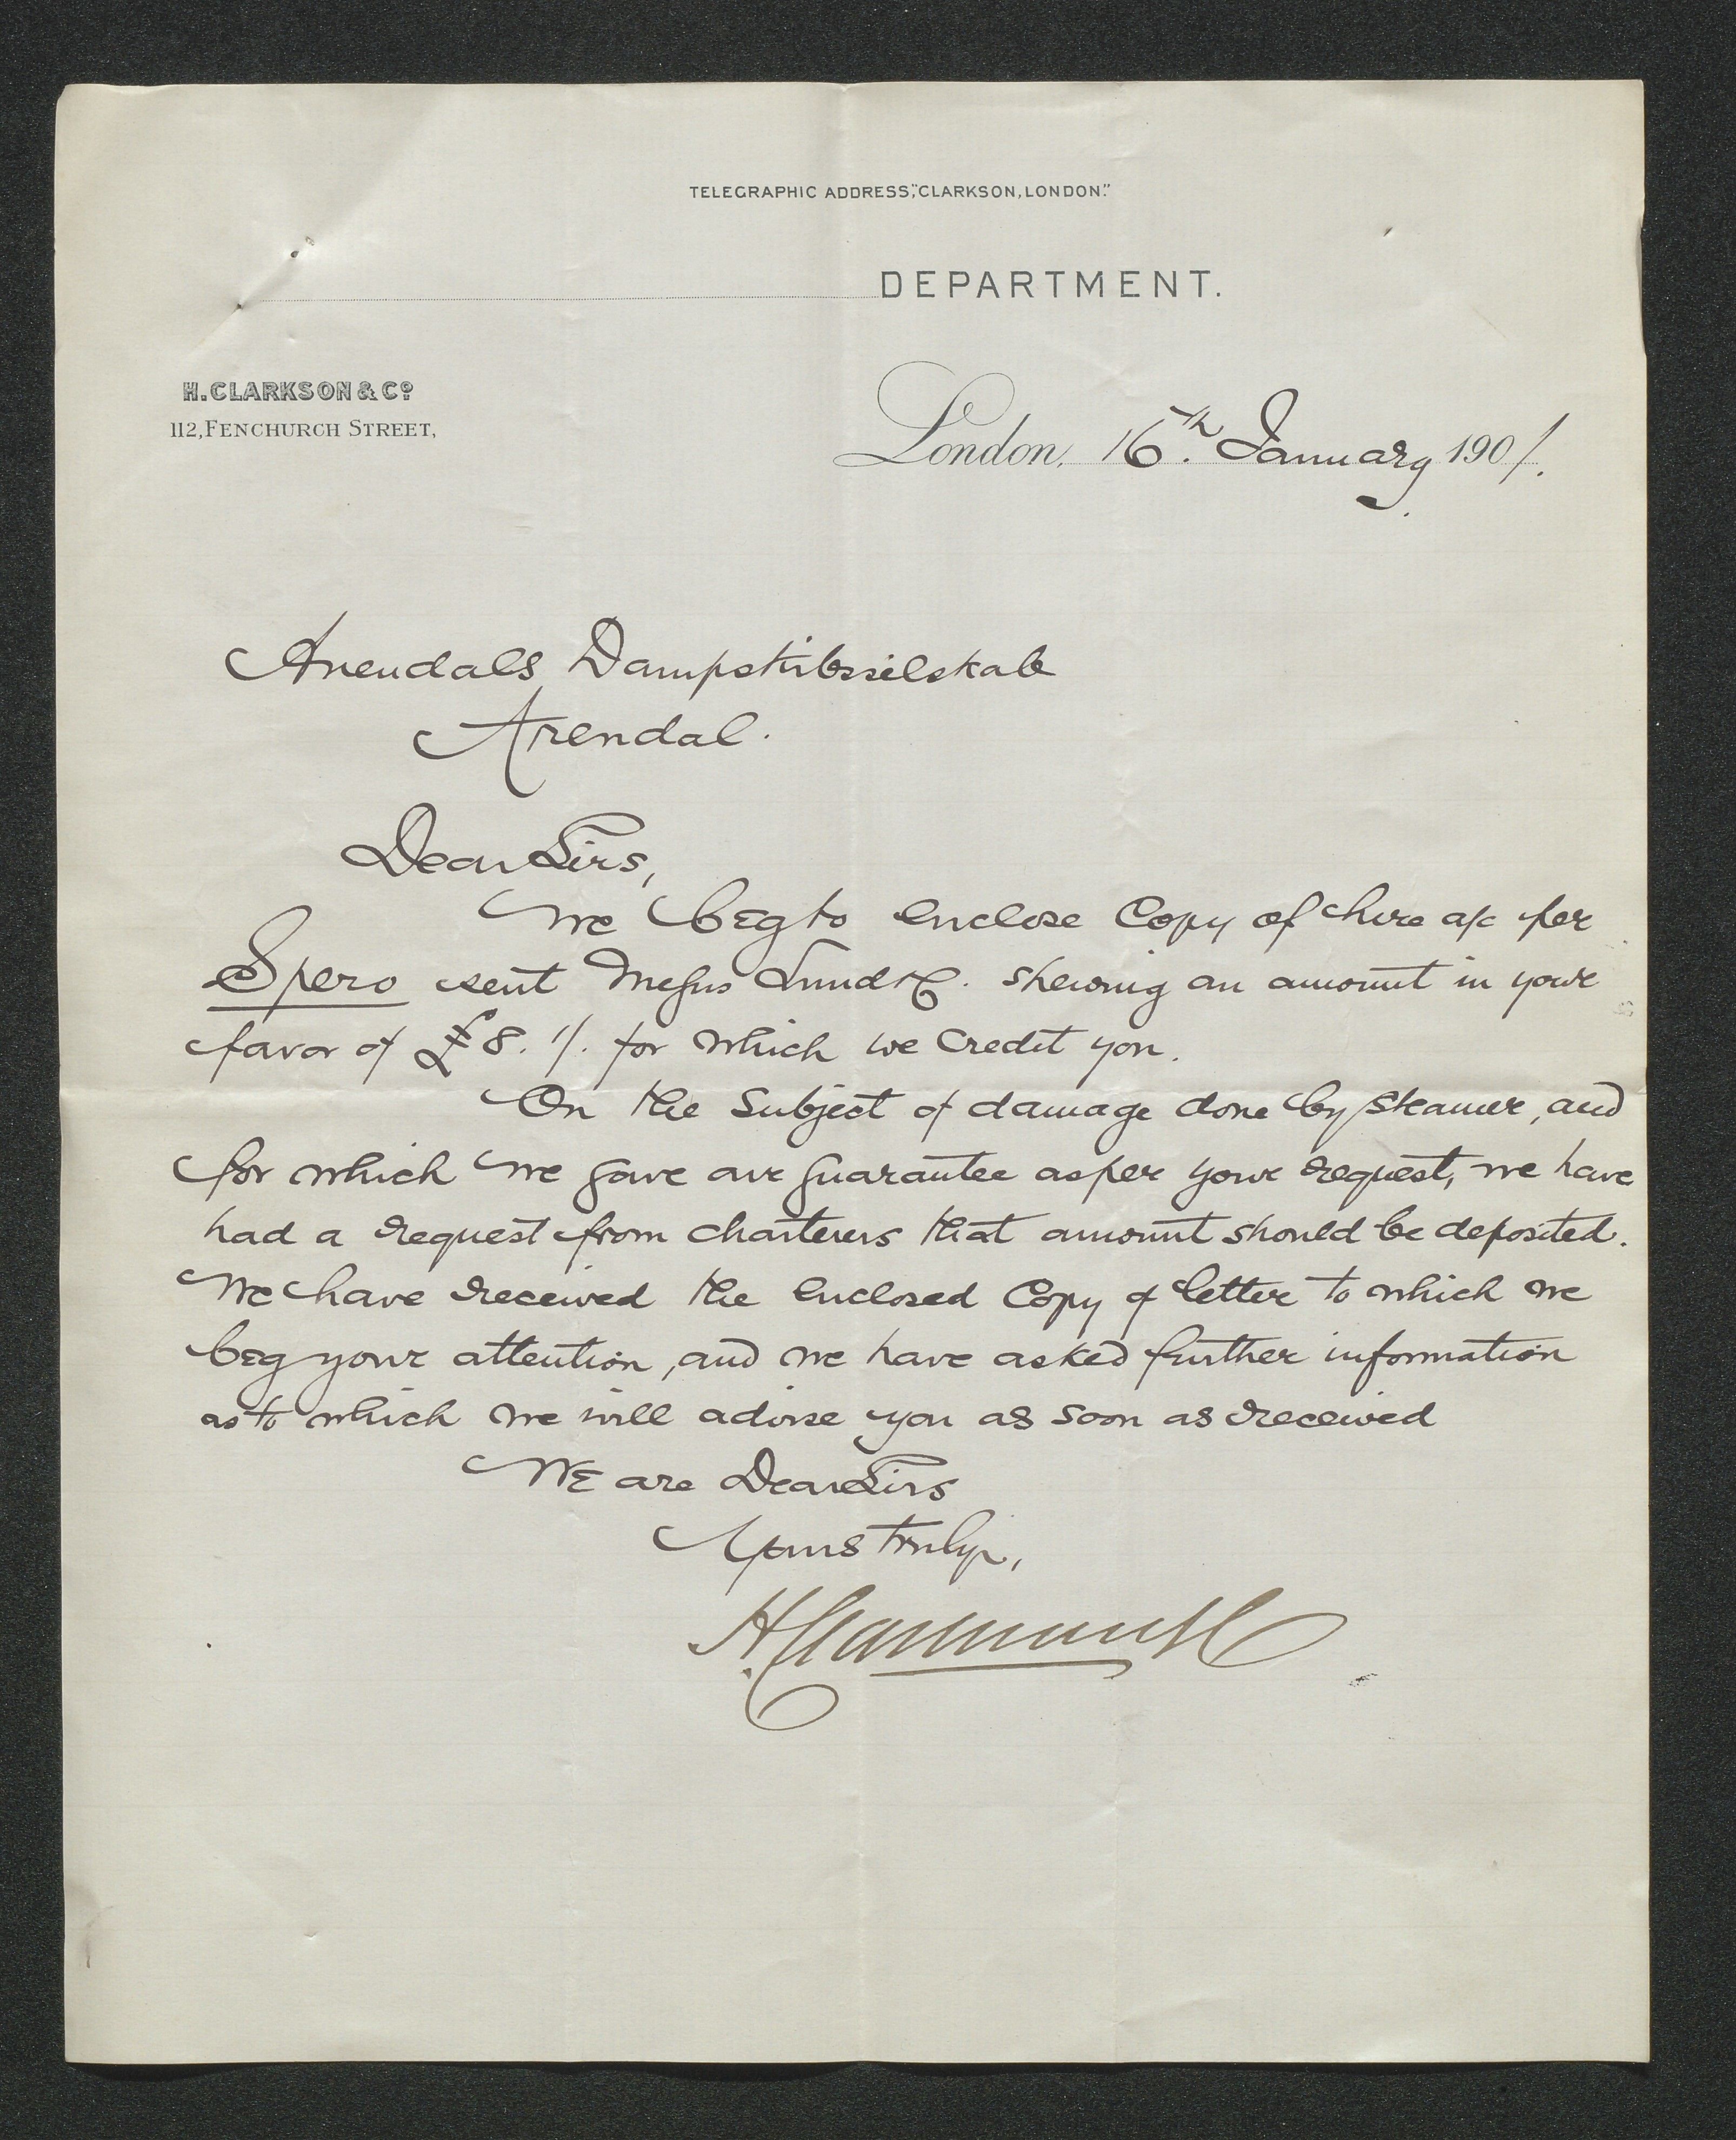 TELEGRAPHIC ADDRESS, "CLARKSON, LONDON."
DEPARTMENT.
H. CLARKSON & Co
112, FENCHURCH STREET,
London, 16th. January 1901.
Arendals Dampskibsselskab
Arendal.
Dear Sirs,
We beg to enclose Copy of hire a/c per
Spero sent Messrs Lund & Co. shewing an amount in your
favor of £8. 1/. for which we Credit you.
On the Subject of damage done by steamer, and
for which we gave our guarantee as per your request, we have
had a request from charterers that amount should be deposited.
We have received the enclosed Copy of letter to which we
beg your attention, and we have asked further information
as to which we will advise you as soon as received
We are Dear Sirs
Yours truly,